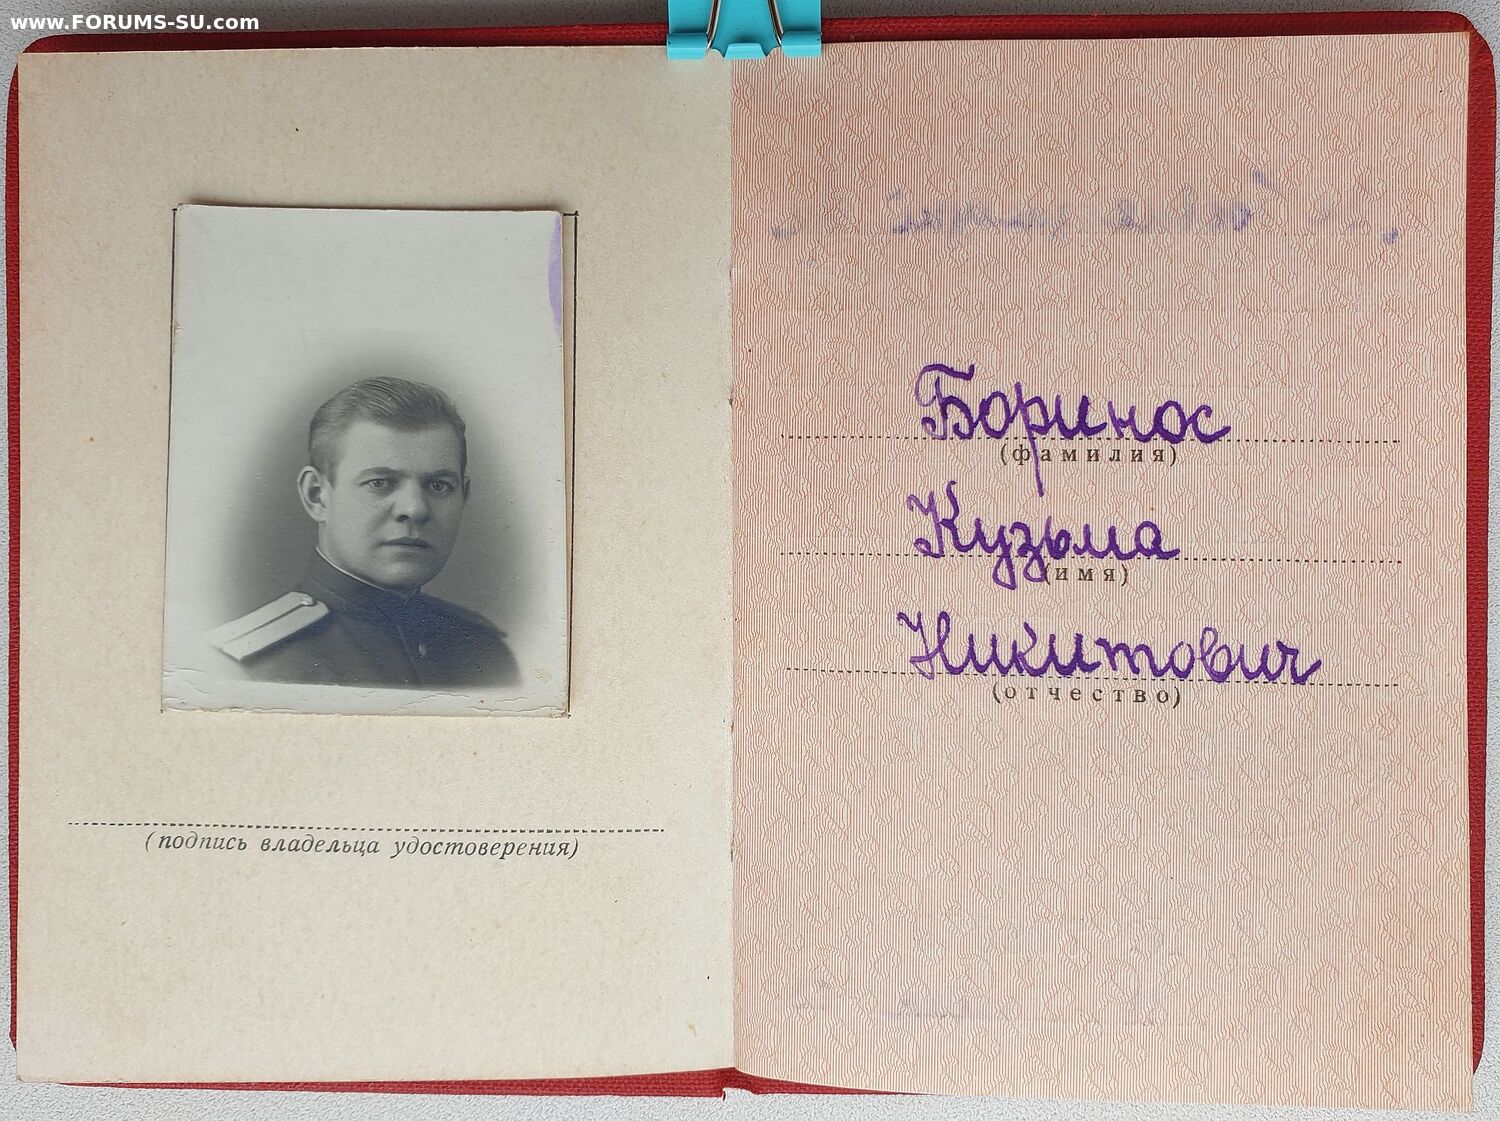 www.FORUMS-SU.com
(подпись владельца удостоверения)
Боринос
(фамилия)
Кузьма
(имя)
Никитович
(отчество)